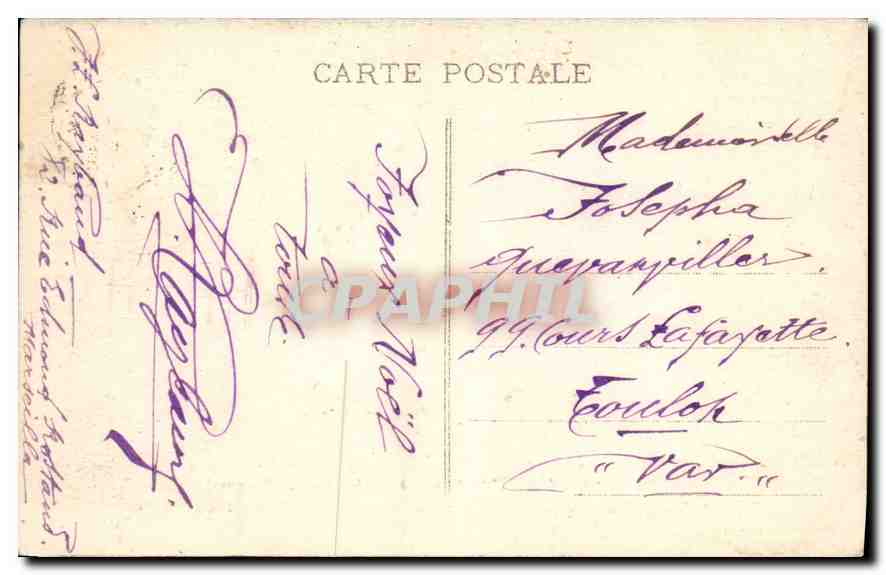 CARTE POSTALE
Mademoiselle
Josepha
Guepanviller.
99. Cours Lafayette.
Toulon
"Var."
Joyeux Noël
a
toute.
72. Rue Edmond Rostand.
Marseille
CPAPHIL